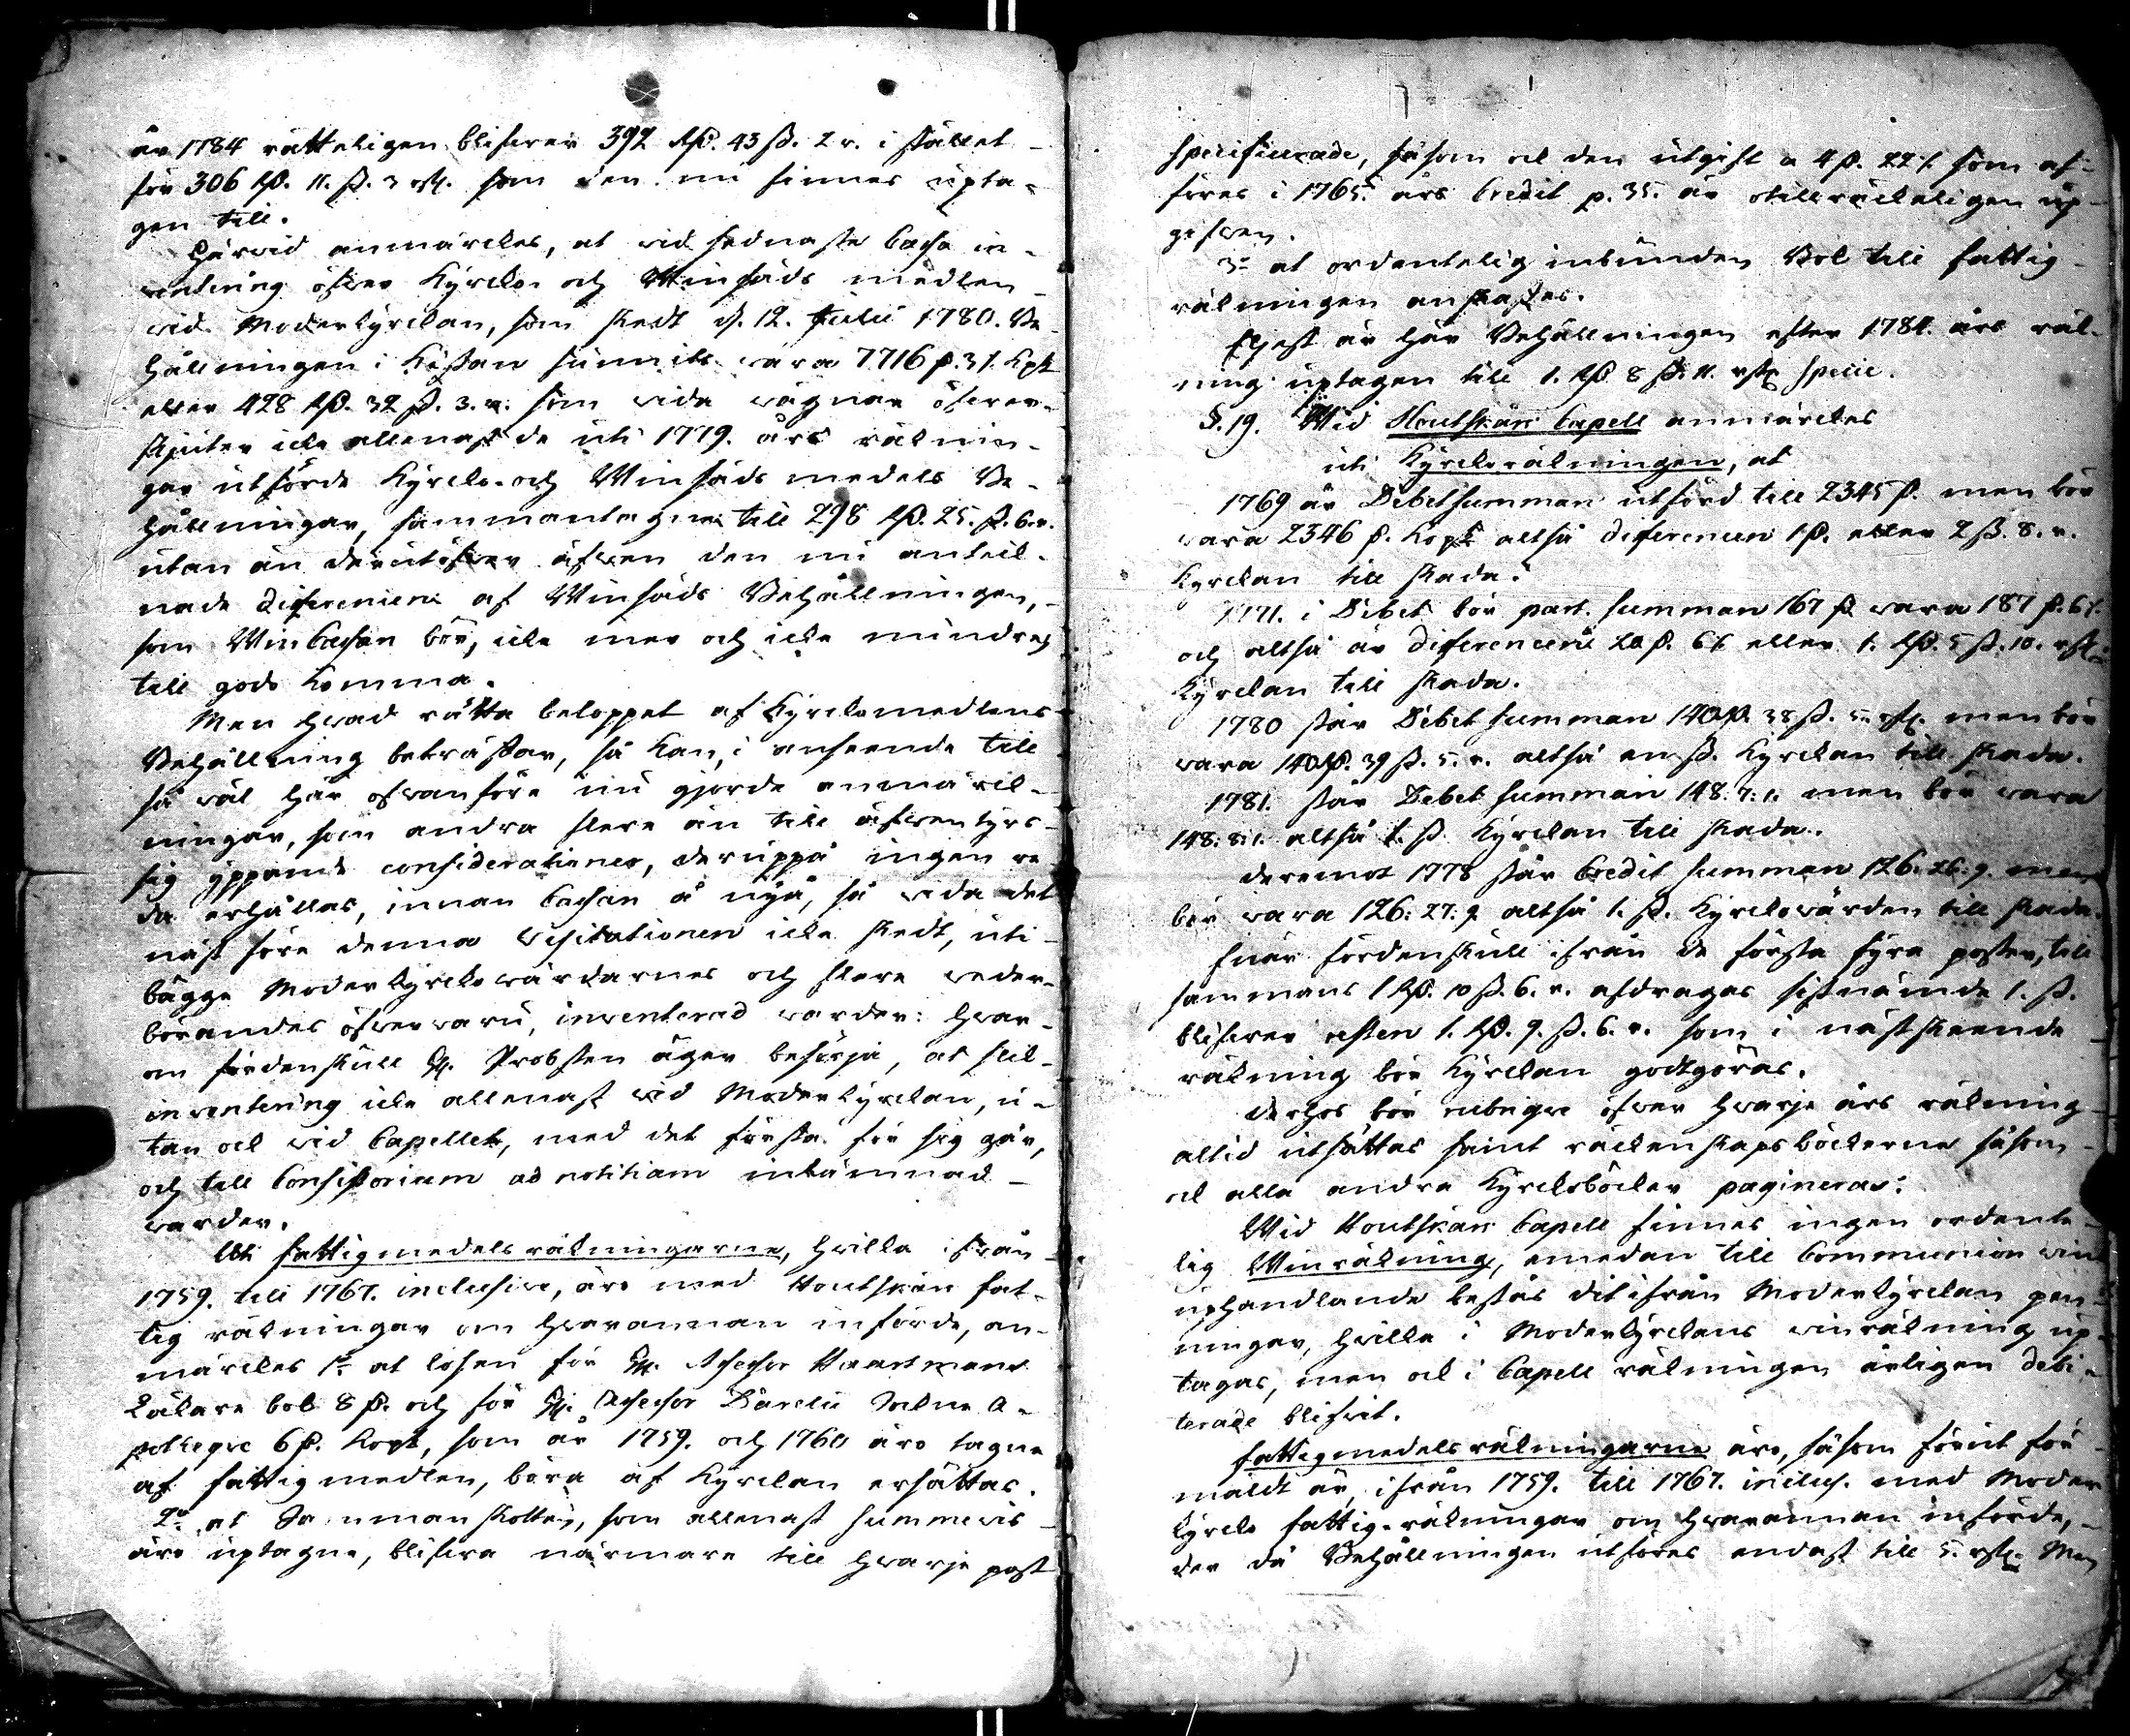 år 1784 rätteligen blifwer 392 Rd. 43 ß. 2 r. i stället
för 306 Rd. 11. ß. 3 rst. som den nu finnes upta-
gen till.
Härwid anmärckes, at wid sednaste Cassa in-
wentering öfwer Kyrcko- och Winsäds medlen
wid Moderkyrckan, som skedt d. 12. Julii 1780. Be-
hållningen i Kistan funnits wara 7716 d. 3 /. Kpt
eller 428 Rd. 32 ß. 3. r. som wida wägnar öfwer-
skjuter icke allenast de uti 1779. års räknin-
gar utförde Kyrcko- och Winsäds medels Be-
hållningar, sammantagne till 298 Rd. 25. ß. 6. r.
utan än derutöfwer äfwen den nu anteck-
nade differencen af Winsäds Behållningen,
som Wincassan bör, icke mer och icke mindre
till godo komma.
Men hwad rätta beloppet af Kyrckomedlens
Behållning beträffar, så kan, i anseende till
så wäl här ofwanföre nu gjorde anmärck-
ningar, som andra flere än till äfwentyrs
sig yppande considerationer, deruppå ingen re-
da erhållas, innan Cassan å nyå, så wida det
näst före denna Visitationen icke skedt, uti
bägge Moderkyrcko wärdarnes och flere weder-
börandes öfwerwaru, inventerad warder: hwar-
om fördenskull H. Probsten äger besörja, at slik
inventering icke allenast wid Moderkyrckan, u-
tan ock wid Capellet, med det första för sig går,
och till Consistorium ad notitiam inlämnad
warder.
Uti fattigmedels räkningarne, hwilka ifrån
1759. till 1767. inclusive, äro med Houtskär fat-
tig räkningar om hwarannan införde, an-
märckes 1o at losen för H. Assessor Haartmans
Läkare bok 8 d. och för H. Assessor Darelii Sockne A-
potheque 6 d. Kopt, som år 1759. och 1760 äro tagne
af fattigmedlen, böra af Kyrckan ersättas.
2o at Sammanskotten, som allenast summewis
äro uptagne, blifwa närmare till hwarje post
specificerade, såsom ock den utgift a 4 d. 22 /. som af-
föres i 1765. års Credit p. 35. är otillräckeligen up-
gifwen.
3o at ordentelig inbunden Bok till fattig-
räkningen anskaffes.
Eljest är här Behållningen efter 1784. års räk-
ning uptagen till 1. Rd. 8 ß. 11. rst. Specie.
§. 19. Wid Houtskär Capell anmärckes
uti Kyrckoräkningen, at
1769 är Debetsumman utförd till 2345 d. men bör
wara 2346 d. Kopt altså differencen 1 d. eller 2 ß. 8. r.
Kyrckan till skada.
1771. i Debet bör part. summan 167 d wara 187 d. 6 /.
och altså är differencen 20 d. 6 /. eller 1. Rd. 5 ß. 10. rst.
Kyrckan till skada.
1780 står Debet summan 140 Rd. 38 ß. 5. rst. men bör
wara 140 Rd. 39 ß. 5. r. altså en ß. Kyrckan till skada.
1781. står Debet summan 148: 7: 1. men bör wara
148: 8: 1. altså 1. ß. Kyrckan till skada.
deremot 1778 står Credit summan 126: 26: 9. men
bör wara 126: 27: 9 altså 1. ß. Kyrckowärden till skada.
När fördenskull ifrån de första fyra poster, till
sammans 1 Rd. 10 ß. 6. r. afdrages sistnämde 1. ß.
blifwer resten 1. Rd. 9. ß. 6. r. som i nästskeende
räkning bör Kyrckan godtgöras.
derhos bör rubrique öfwer hwarje års räkning
altid utsättas samt räckenskapsböckerne såsom
ock alla andra Kyrckoböcker pagineras.
Wid Houtskär Capell finnes ingen ordente-
lig Winräkning, emedan till Communion wins
uphandlande bestås dit ifrån Moderkyrckan pen-
ningar, hwilka i Moderkyrckans winräkning up-
tagas, men ock i Capell räkningen årligen debi-
terade blifwit.
Fattigmedels räkningarne äro, såsom förut för-
mäldt är, ifrån 1759. till 1767. inclus. med Moder
kyrcko fattig-räkningar om hwarannan införde,
der då Behållningen utföres endast till 5. rst. Men